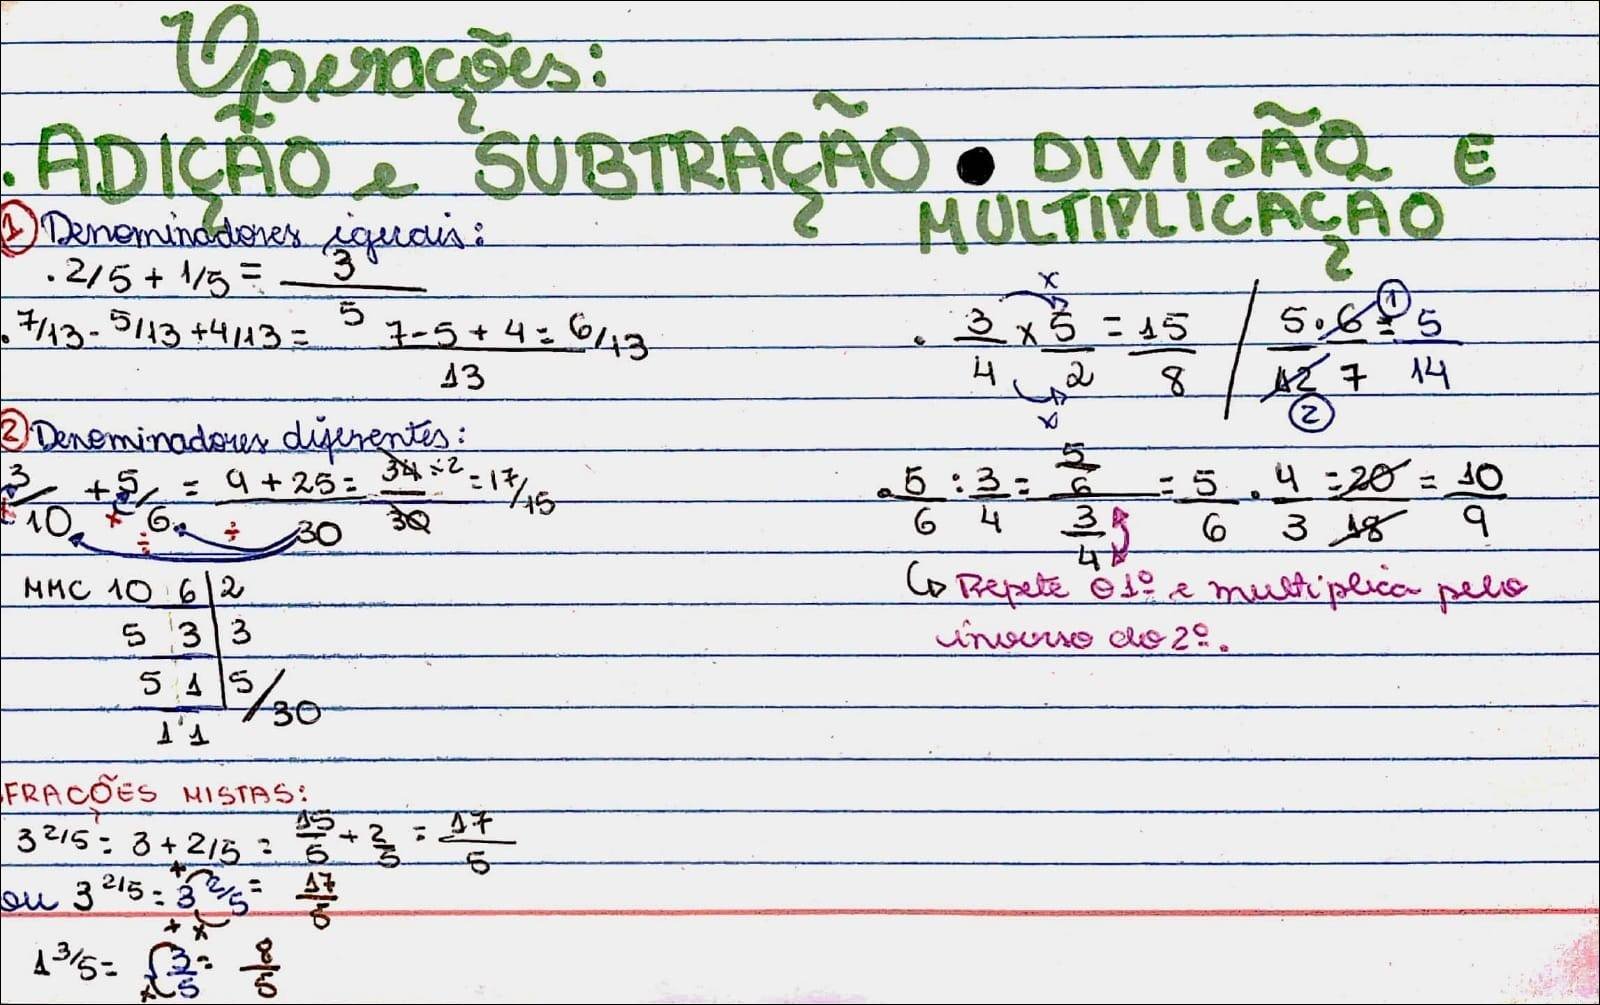 Operações:
. ADIÇÃO e SUBTRAÇÃO • DIVISÃO E MULTIPLICAÇAO
1 Denominadores iguais:
. 2/5 + 1/5 = 3/5
. 7/13 - 5/13 + 4/13 = 7-5+4/13 = 6/13
2 Denominadores diferentes:
3/10 + 5/6 = 9+25/30 = 34/30 ÷2 = 17/15
MMC 10 6 | 2
5 3 | 3
5 1 | 5 / 30
1 1
FRAÇÕES MISTAS:
3 2/5 = 3 + 2/5 = 15/5 + 2/5 = 17/5
ou 3 2/5 = 3 2/5 = 17/5
1 3/5 = 3/5 = 8/5
. 3/4 x 5/2 = 15/8 / 5/12 . 6/7 = 5/14
x x 1 2
. 5/6 : 3/4 = 5/6 / 3/4 = 5/6 . 4/3 = 20/18 = 10/9
↳ Repete o 1º e multiplica pelo
inverso do 2º.